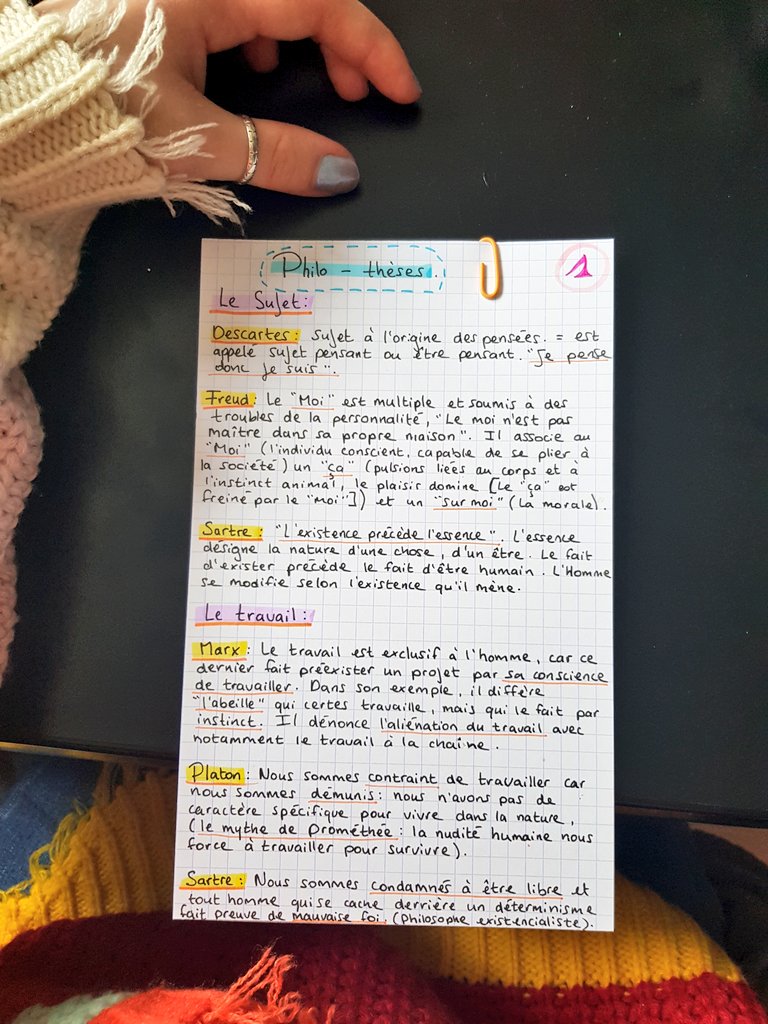 Philo - thèses.
1
Le Sujet:
Descartes: Sujet à l'origine des pensées. = est
appelé sujet pensant ou être pensant. "Je pense
donc je suis".
Freud: Le "Moi" est multiple et soumis à des
troubles de la personnalité, "Le moi n'est pas
maître dans sa propre maison". Il associe au
"Moi" (l'individu conscient, capable de se plier à
la société) un "ça" (pulsions liées au corps et à
l'instinct animal, le plaisir domine [Le "ça" est
freiné par le "moi"]) et un "sur moi" (la morale).
Sartre: "L'existence précède l'essence". L'essence
désigne la nature d'une chose, d'un être. Le fait
d'exister précède le fait d'être humain. L'Homme
se modifie selon l'existence qu'il mène.
Le travail:
Marx: Le travail est exclusif à l'homme, car ce
dernier fait préexister un projet par sa conscience
de travailler. Dans son exemple, il diffère
"l'abeille" qui certes travaille, mais qui le fait par
instinct. Il dénonce l'aliénation du travail avec
notamment le travail à la chaîne.
Platon: Nous sommes contraint de travailler car
nous sommes démunis: nous n'avons pas de
caractère spécifique pour vivre dans la nature,
(le mythe de Prométhée: la nudité humaine nous
force à travailler pour survivre).
Sartre: Nous sommes condamnés à être libre et
tout homme qui se cache derrière un déterminisme
fait preuve de mauvaise foi. (philosophe existencialiste).